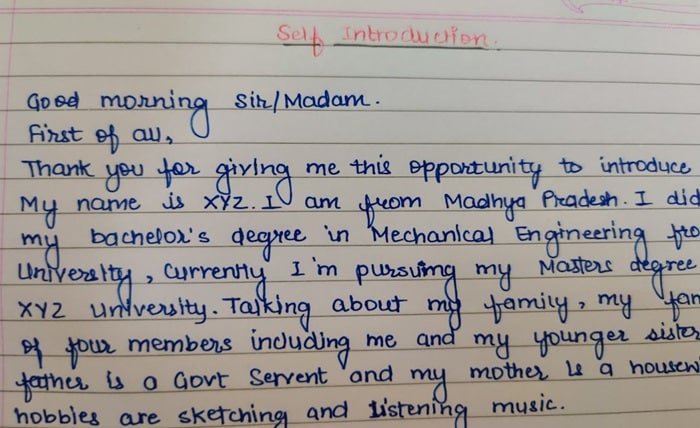 Self Introduction.
Good morning Sir/Madam.
First of all,
Thank you for giving me this opportunity to introduce
My name is XYZ. I am from Madhya Pradesh. I did
my bachelor's degree in Mechanical Engineering fro
University, Currently I'm pursuing my Masters degree
XYZ University. Talking about my family, my fam
of four members including me and my younger sister
father is a Govt Servent and my mother is a housewi
hobbies are sketching and listening music.